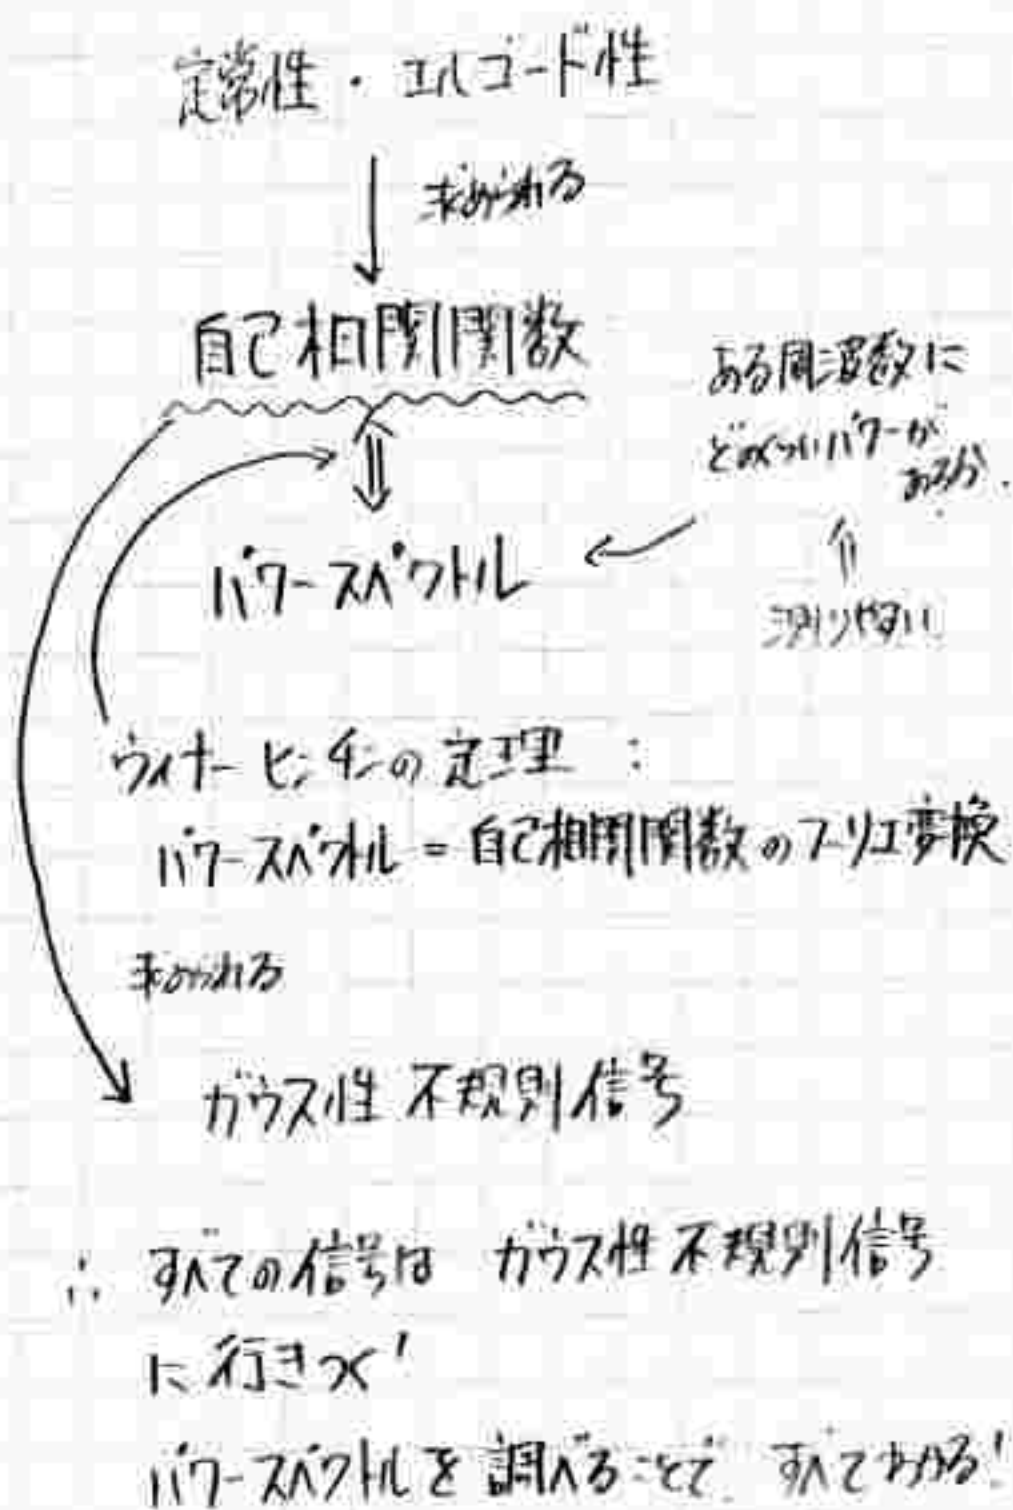 定常性・エルゴード性
求められる
自己相関関数
ある周波数に
どのくらいパワーが
あるか.
パワースペクトル
測りやすい
ウィナーヒンチンの定理:
パワースペクトル = 自己相関関数のフーリエ変換
求められる
ガウス性 不規則信号
∴ すべての信号は ガウス性 不規則信号
に行きつく!
パワースペクトルを調べることで すべてわかる!